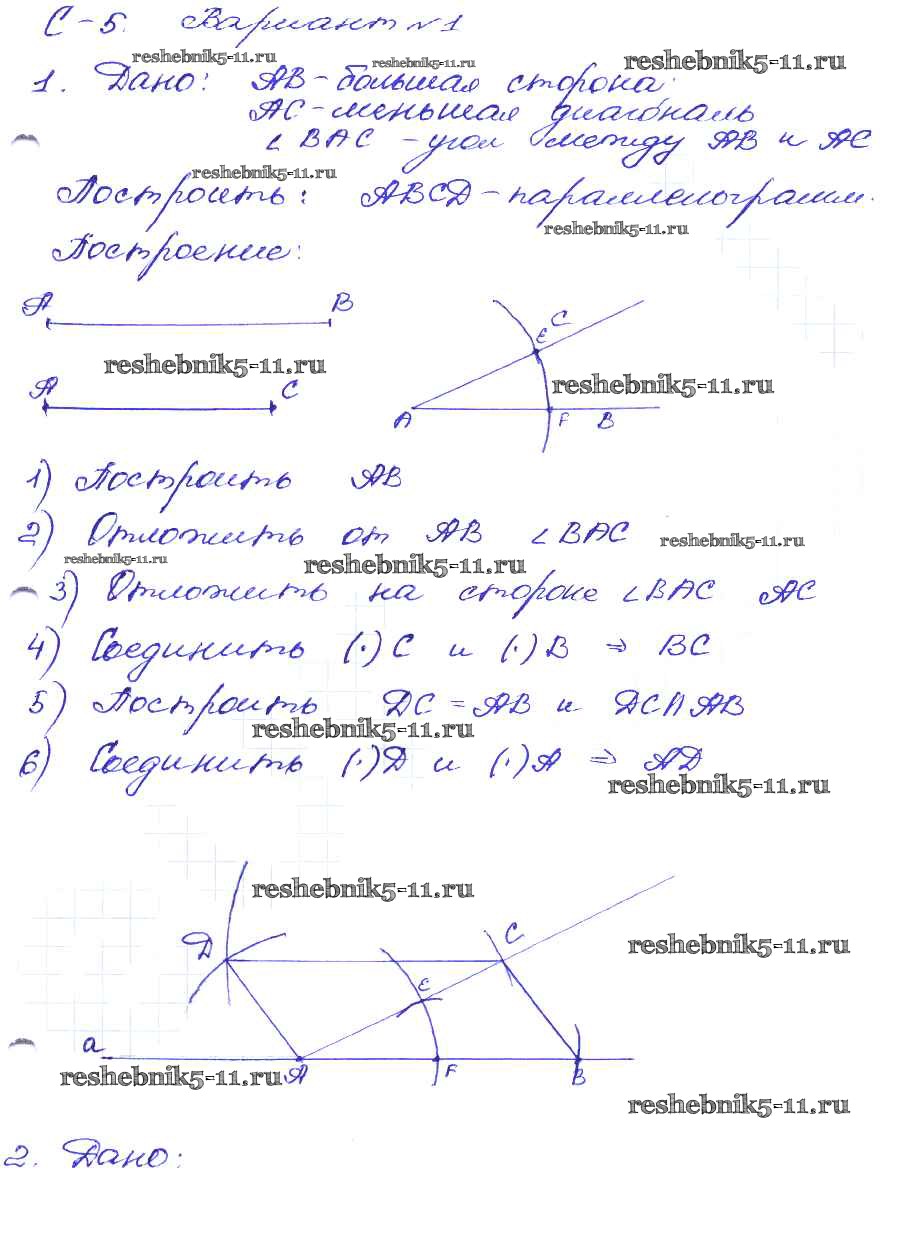 С-5. Вариант №1
reshebnik5-11.ru reshebnik5-11.ru reshebnik5-11.ru
1. Дано: AB - большая сторона.
AC - меньшая диагональ
∠BAC - угол между AB и AC
reshebnik5-11.ru
Построить: ABCD - параллелограмм.
reshebnik5-11.ru
Построение:
A B
E C
reshebnik5-11.ru
reshebnik5-11.ru
A C
A F B
1) Построить AB
2) Отложить от AB ∠BAC
reshebnik5-11.ru
reshebnik5-11.ru reshebnik5-11.ru
3) Отложить на стороне ∠BAC AC
4) Соединить (·)C и (·)B ⇒ BC
5) Построить DC = AB и DC∩AB
reshebnik5-11.ru
6) Соединить (·)D и (·)A ⇒ AD
reshebnik5-11.ru
reshebnik5-11.ru
D C
reshebnik5-11.ru
E
a
reshebnik5-11.ru A F B
reshebnik5-11.ru
2. Дано: